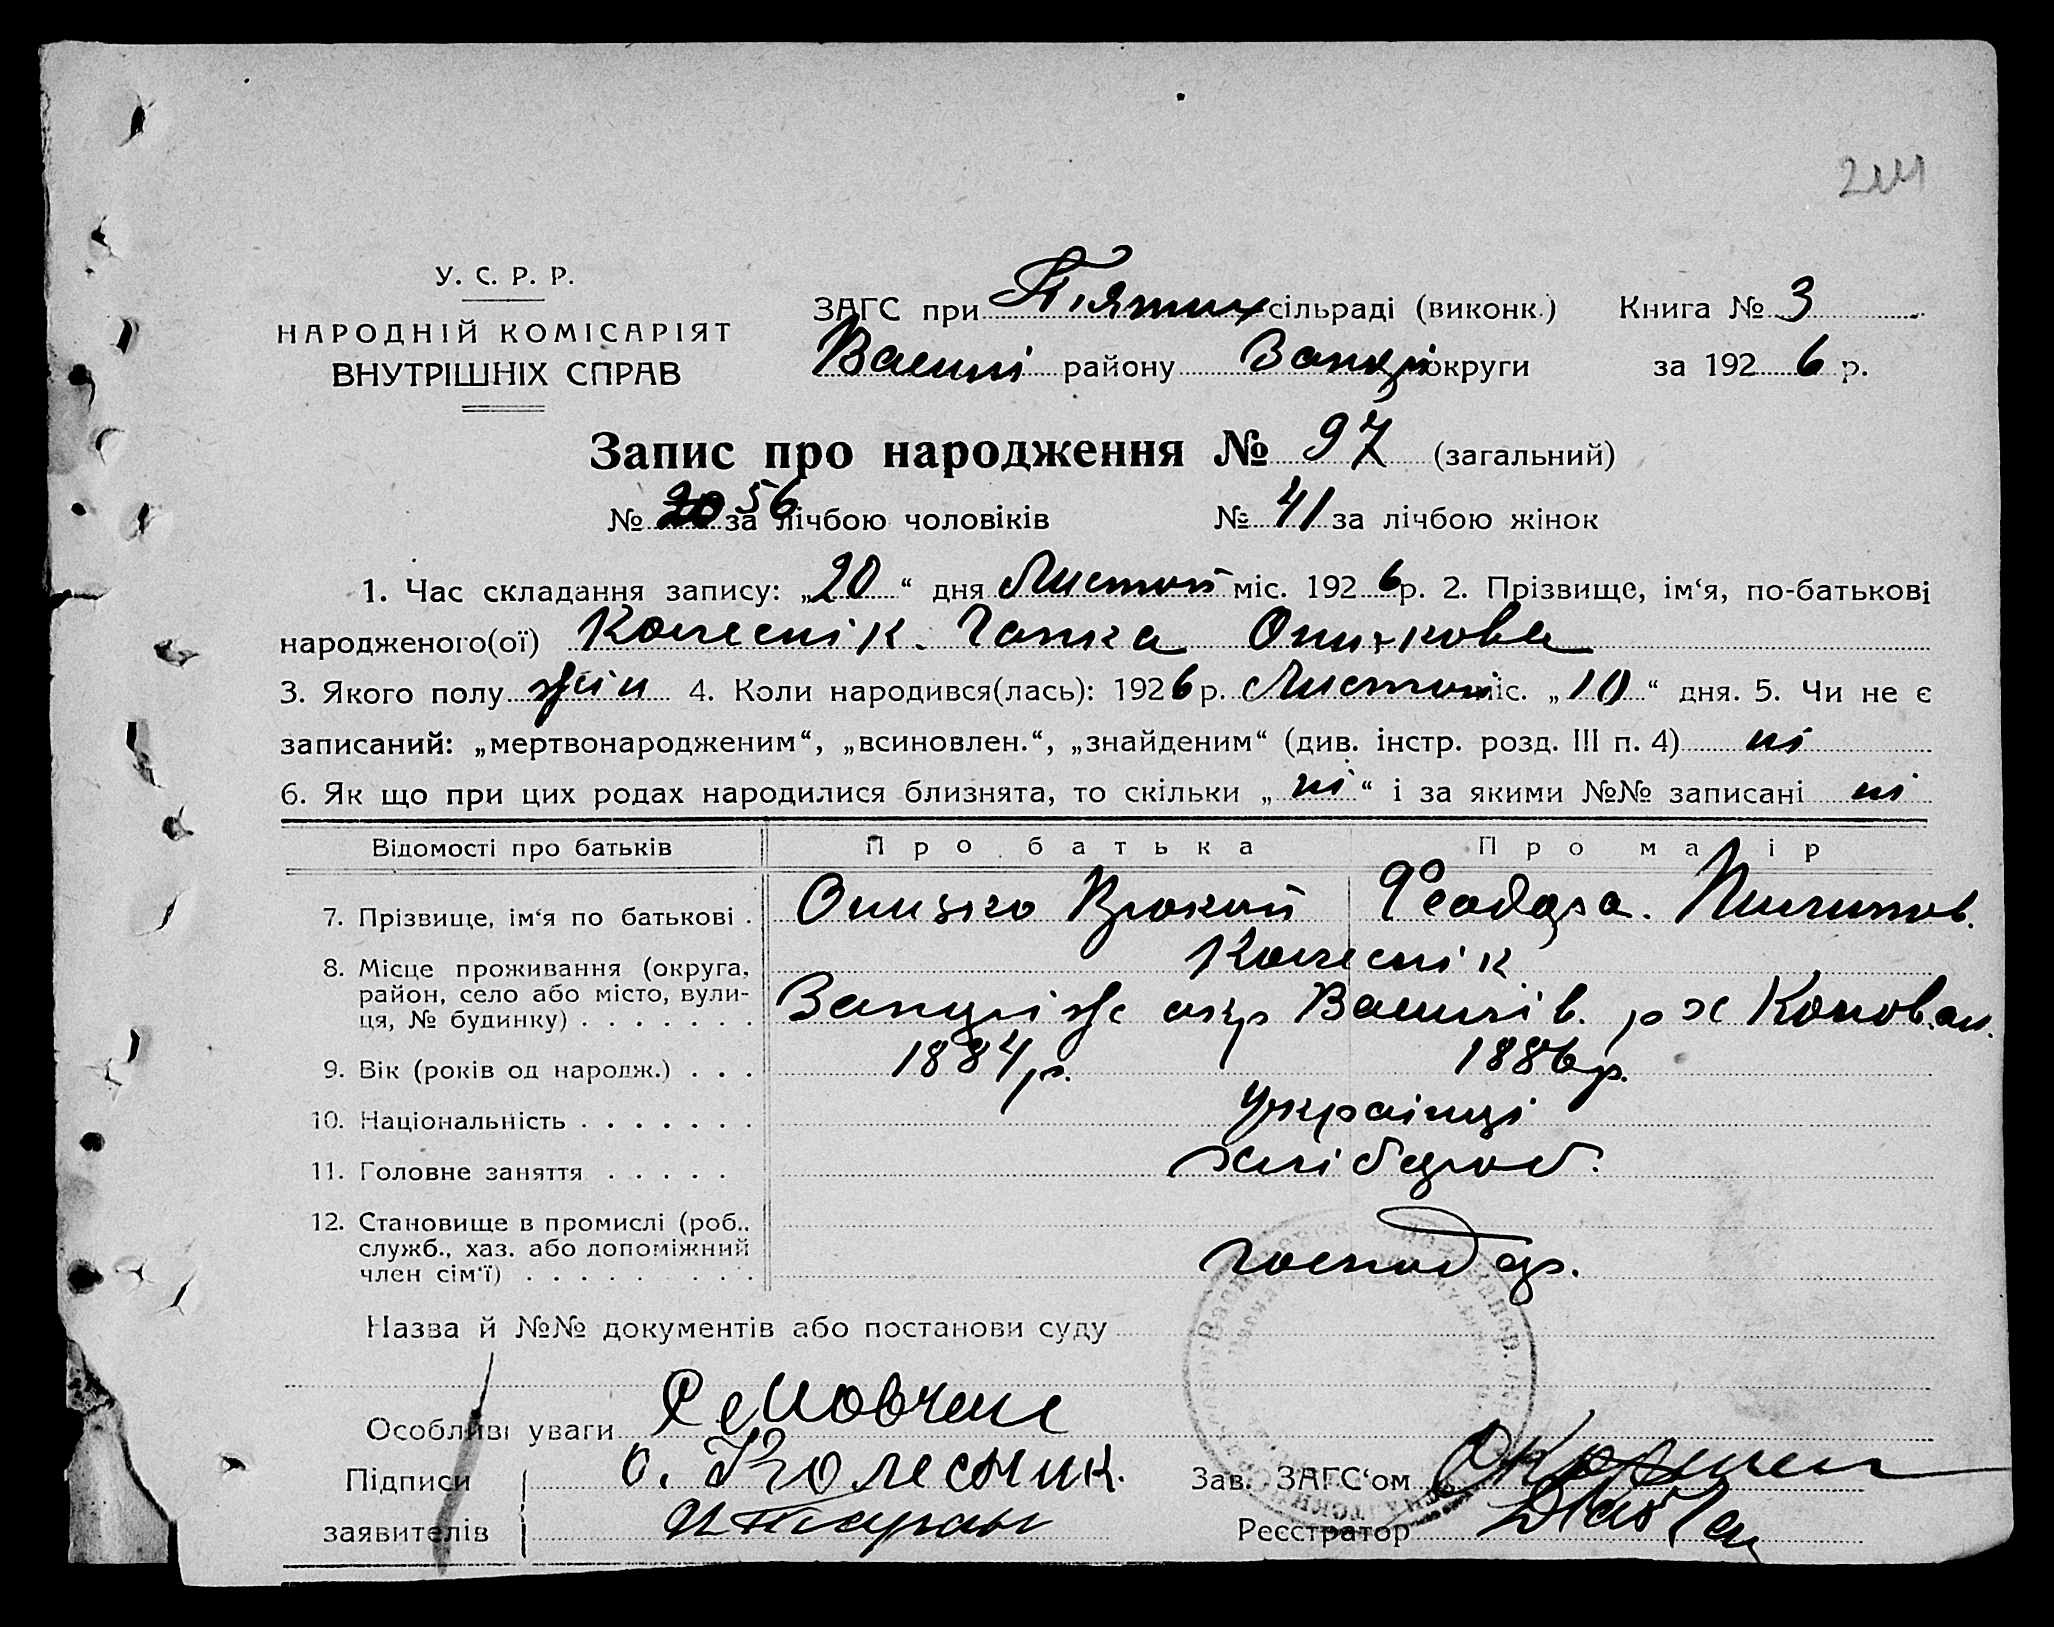 У. С. Р. Р.
НАРОДНІЙ КОМІСАРІЯТ
ВНУТРІШНІХ СПРАВ
ЗАГС при П'ятих сільраді (виконк.) Книга № 3
Васил району Запоріж округи за 1926 р.
Запис про народження № 97 (загальний)
№ 20 56 за лічбою чоловіків № 41 за лічбою жінок
1. Час складання запису: „20“ дня Листоп міс. 1926 р. 2. Прізвище, ім‘я, по-батькові
народженого(ої) Колеснік. Ганка
3. Якого полу жін 4. Коли народився(лась): 1926 р. Листоп міс. „10“ дня. 5. Чи не є
записаний: „мертвонародженим“, „всиновлен.“, „знайденим“ (див. інстр. розд. III п. 4) ні
6. Як що при цих родах народилися близнята, то скільки „ні“ і за якими №№ записані ні
Відомості про батьків Про батька Про матір
7. Прізвище, ім‘я по батькові . Феодора.
Колеснік
8. Місце проживання (округа,
район, село або місто, вули-
ця, № будинку) . . . . . . . Запоріж окр Василів. р х Коновал.
9. Вік (років од народж.) . . . 1884 р. 1886 р.
10. Національність . . . . . . . українці
11. Головне заняття . . . . . хлібороб.
12. Становище в промислі (роб.,
служб., хаз. або допоміжний
член сім‘ї) . . . . . . . . . господар.
Назва й №№ документів або постанови суду
Особливі уваги
Підписи заявителів о. Колесник.
Зав. ЗАГС‘ом
Реєстратор